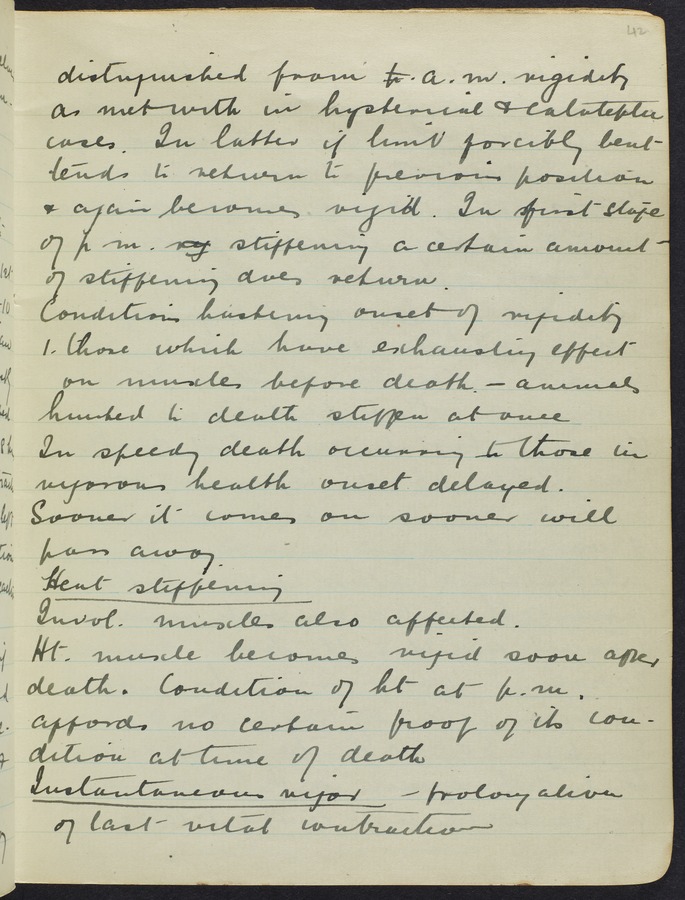 42
distinguished from a.m. rigidity
as met with in hysterical & cataleptic
cases. In latter if limb forcibly bent
tends to return to previous position
& again becomes rigid. In first stage
of p.m. stiffening a certain amount
of stiffening does return.
Conditions hastening onset of rigidity
1. those which have exhausting effect
on muscles before death. – animals
hunted to death stiffen at once
In speedy death occurring to those in
vigorous health onset delayed.
Sooner it comes on sooner will
pass away
Heat stiffening
Invol. muscles also affected.
Ht. muscle becomes rigid soon after
death. Condition of ht at p.m.
affords no certain proof of its con-
dition at time of death
Instantaneous rigor – prolongation
of last vital contraction